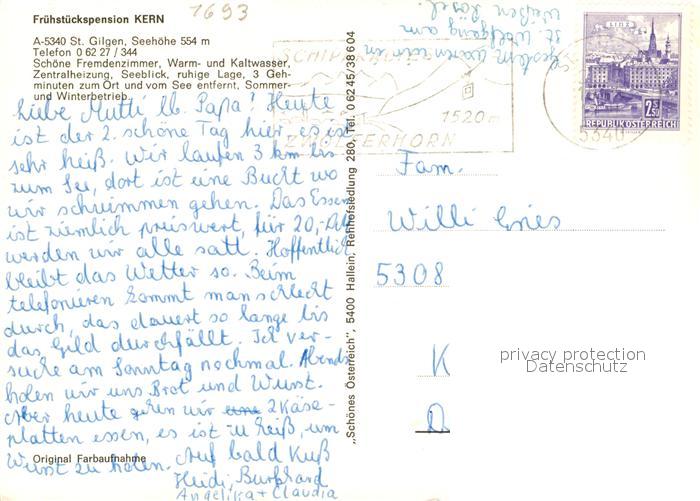 1693
Frühstückspension KERN
A-5340 St. Gilgen, Seehöhe 554 m
Telefon 0 62 27 / 344
Schöne Fremdenzimmer, Warm- und Kaltwasser,
Zentralheizung, Seeblick, ruhige Lage, 3 Geh-
minuten zum Ort und vom See entfernt, Sommer-
und Winterbetrieb.
Liebe Mutti lb. Papa! Heute
ist der 2. schöne Tag hier, es ist
sehr heiß. Wir laufen 3 km bis
zum See, dort ist eine Bucht wo
wir schwimmen gehen. Das Essen
ist ziemlich preiswert, für 20,-DM
werden wir alle satt. Hoffentlich
bleibt das Wetter so. Beim
telefonieren kommt man schlecht
durch, das dauert so lange bis
das Geld durchfällt. Ich ver-
suche am Sonntag nochmal. Abends
holen wir uns Brot und Wurst.
Aber heute gehen wir 2 Käse-
platten essen, es ist zu heiß, um
Wurst zu holen. Auf bald Kuß
Heidi, Burkhard
Angelika + Claudia
Original Farbaufnahme
„Schönes Österreich", 5400 Hallein, Rehhofsiedlung 280, Tel. 0 62 45/38 6 04
Gestern waren wir in
St. Wolfgang am
weißen Rössl.
1520 m
ZWÖLFERHORN
5340
LINZ
2.50
REPUBLIK ÖSTERREICH
Fam.
Willi Gries
5308
privacy protection
Datenschutz